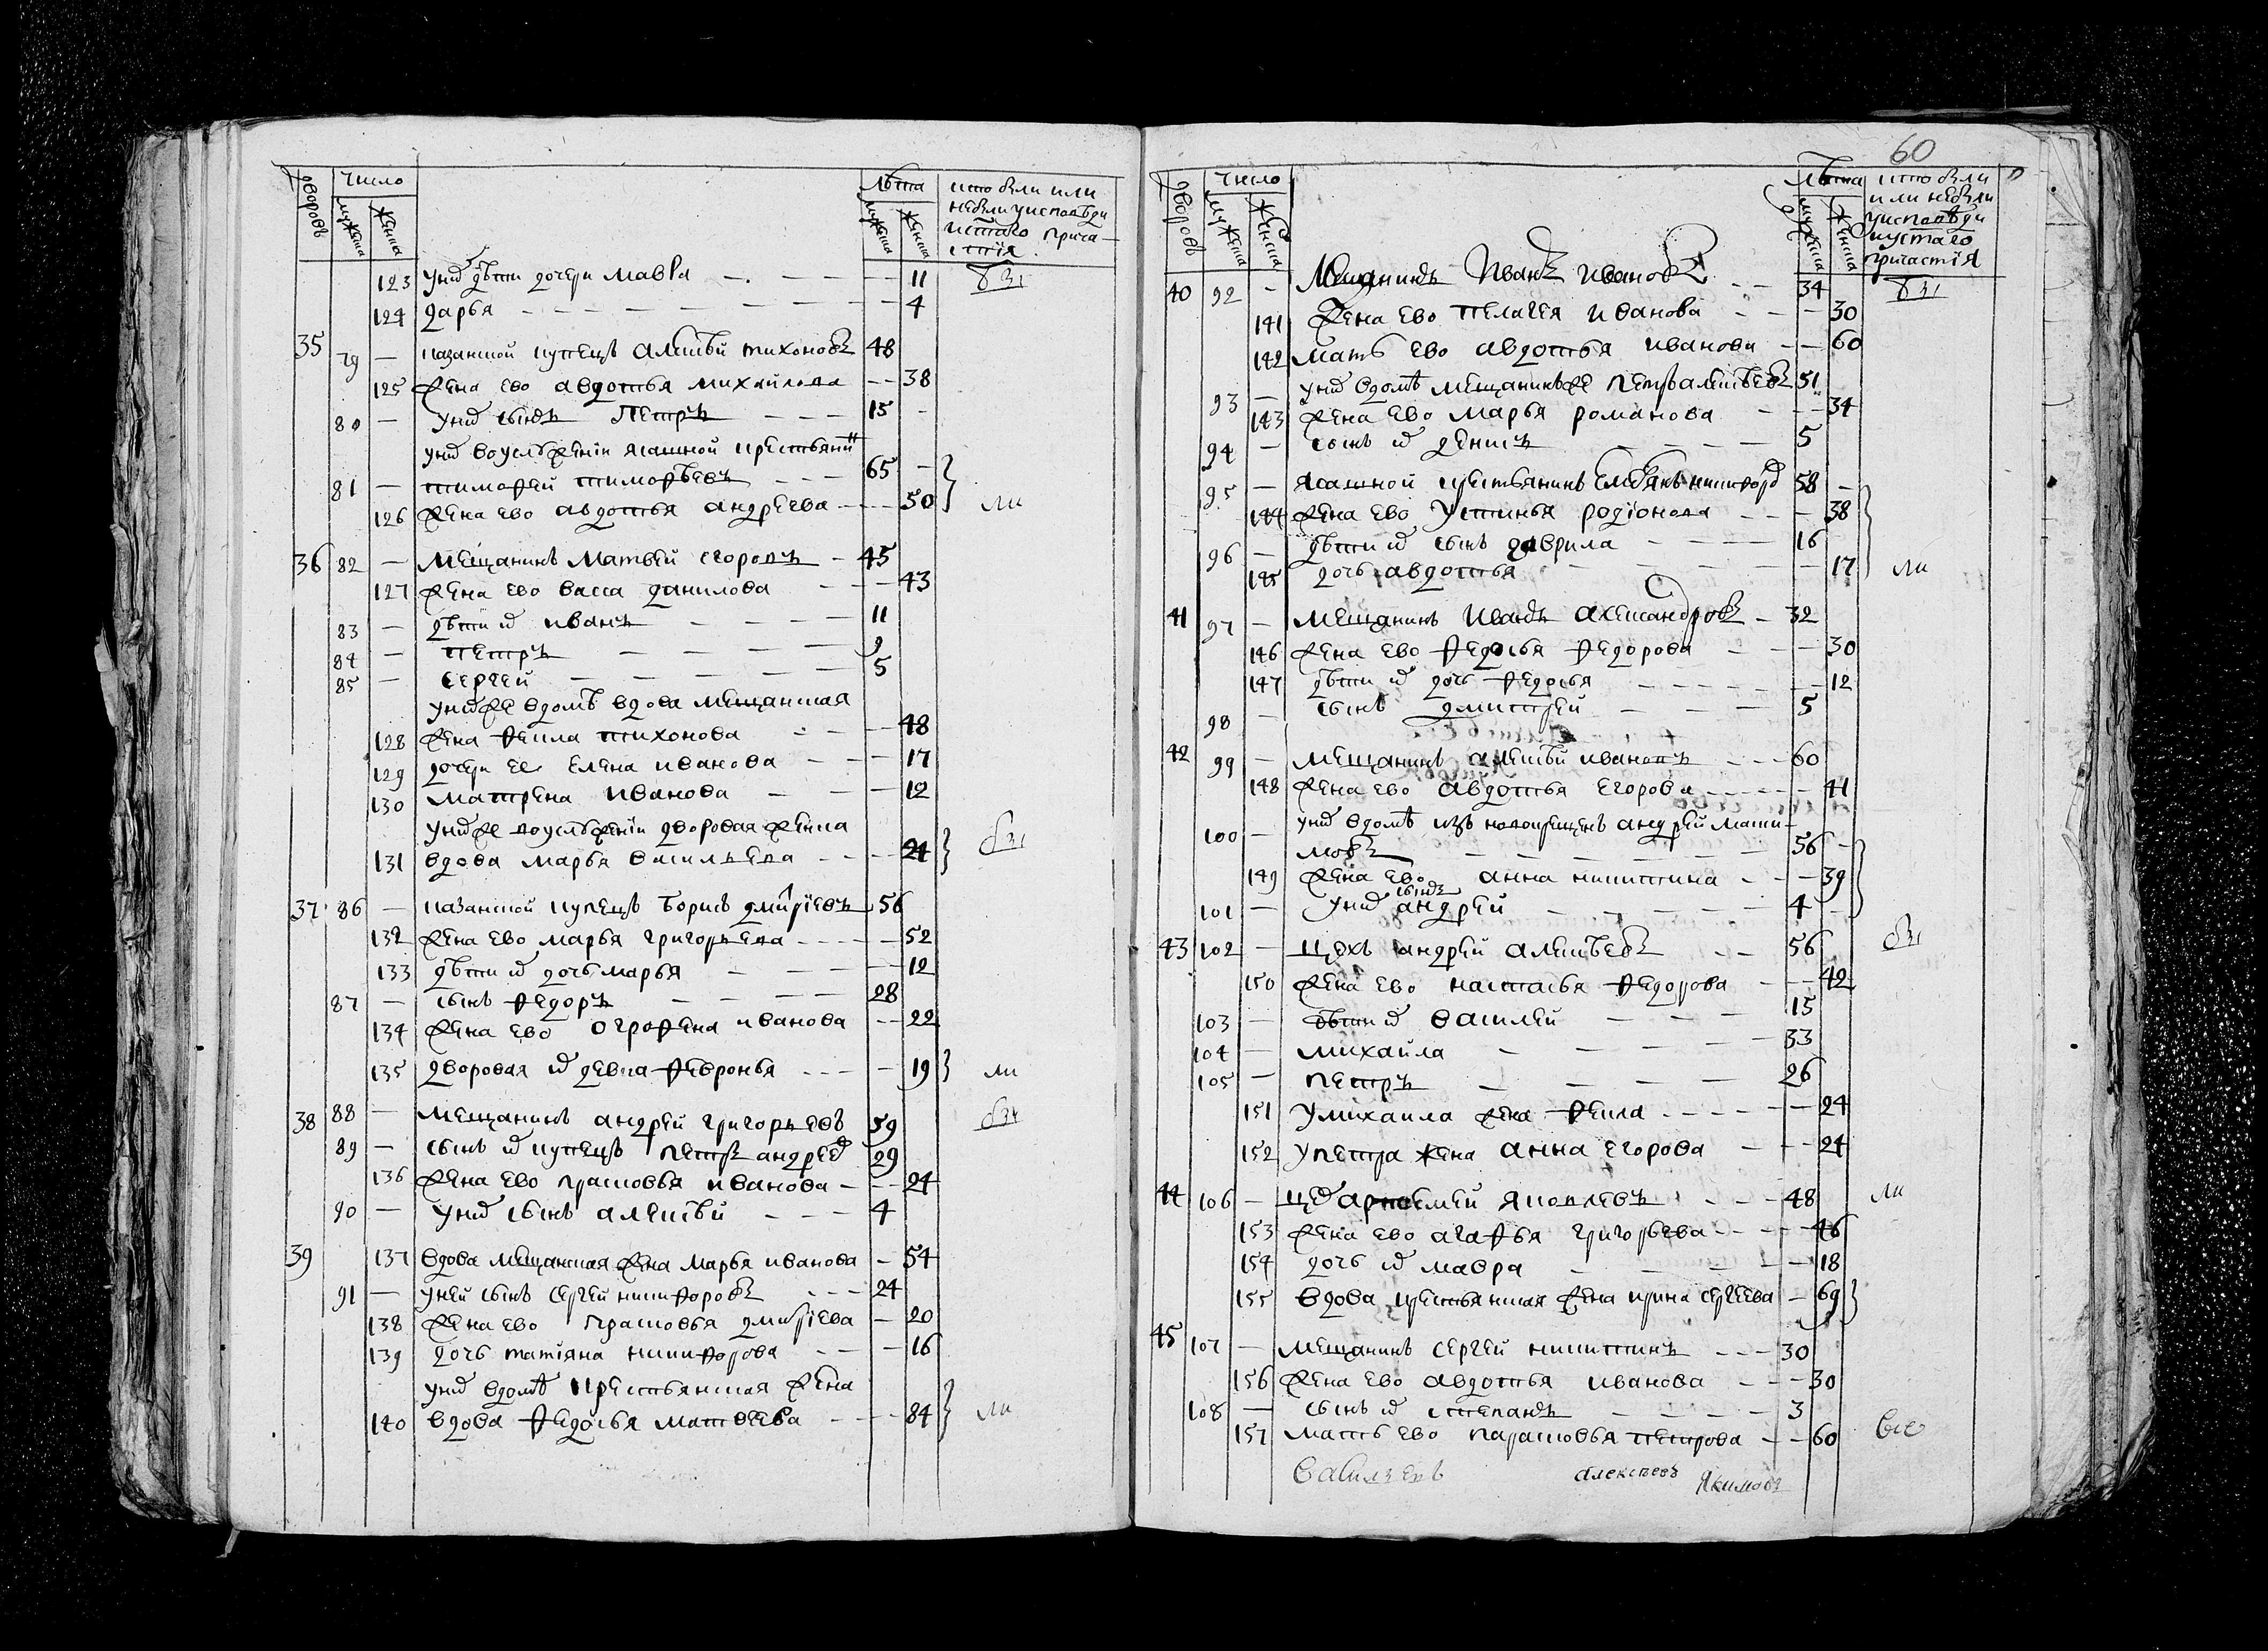 дворовъ число лѣта кто были или
мужеска женска мужеска женска небыли уисповѣди
истаго прича-
стїя
123 унихъ дѣти дочери мавра 11
124 дарья 4
35 79 казанской купецъ алексѣй тихоновъ 48
125 жена ево авдотья михайлова 38
80 унихъ сынъ Петръ 15
унихъ воуслуженїи ясашной крестьянинъ
81 тимофей тимофѣевъ 65
126 жена ево авдотья андреева 50
36 82 мещанинъ Матвѣй егоровъ 45
127 жена ево васса данилова 43
83 дѣти ихъ иванъ 11
84 петръ 9
85 сергей 5
унихже вдомѣ вдова мещанская
128 жена фекла тихонова 48
129 дочери ее елена иванова 17
130 матрена иванова 12
унихже воуслуженїи дворовая женка
131 вдова марья васильева 24
37 86 казанской купецъ борисъ дмитрїевъ 56
132 жена ево марья григорьева 52
133 дѣти ихъ дочь марья 12
87 сынъ федоръ 28
134 жена ево огрофена иванова 22
135 дворовая ихъ девка февронья 19
38 88 мещанинъ андрей григорьевъ 59
89 сынъ ихъ купецъ петръ андреевъ 29
136 жена ево прасковья иванова 24
90 унихъ сынъ алексѣй 4
39 137 вдова мещанская жена марья иванова 54
91 уней сынъ сергей никифоровъ 24
138 жена ево прасковья дмитрїева 20
139 дочь татїяна никифорова 16
унихъ вдомѣ крестьянская жена
140 вдова федосья матвеева 84
60
дворовъ число лѣта кто были
мужеска женска мужеска женска или небыли
уисповѣди
иустаго
причастїя
40 92 Мещанинъ Иванъ Ивановъ 34
141 жена ево пелагея иванова 30
142 мать ево авдотья иванова 60
93 унихъ вдомѣ мещанинъже петръ алексѣевъ 51
143 жена ево марья романова 34
94 сынъ ихъ денисъ 5
95 ясашной крестьянинъ емельянъ никифоровъ 58
144 жена ево устинья родїонова 38
96 дѣти ихъ сынъ гаврила 16
145 дочь авдотья 17
41 97 мещанинъ Иванъ Александровъ 32
146 жена ево федосья федорова 30
147 дѣти ихъ дочь федосья 12
98 сынъ дмитрей 5
42 99 мещанинъ алексѣй ивановъ 60
148 жена ево авдотья егорова 41
100 унихъ вдомѣ изъ новокрещенъ андрей макси-
мовъ 56
149 жена ево анна никитина 39
101 унихъ сынъ андрей 4
43 102 цехъ андрей алексѣевъ 56
150 жена ево настасья федорова 42
103 дѣти ихъ василей 15
104 михайла 33
105 петръ 26
151 умихаила жена фекла 24
152 упетра жена анна егорова 24
44 106 цехъ артемей яковлевъ 48
153 жена ево агафья григорьева 46
154 дочь ихъ мавра 18
155 вдова крестьянская жена ирина сергеева 69
45 107 мещанинъ сергей никитинъ 30
156 жена ево авдотья иванова 30
108 сынъ ихъ степанъ 3
157 мать ево парасковья петрова 60
Васильевъ Алексѣевъ Якимовъ